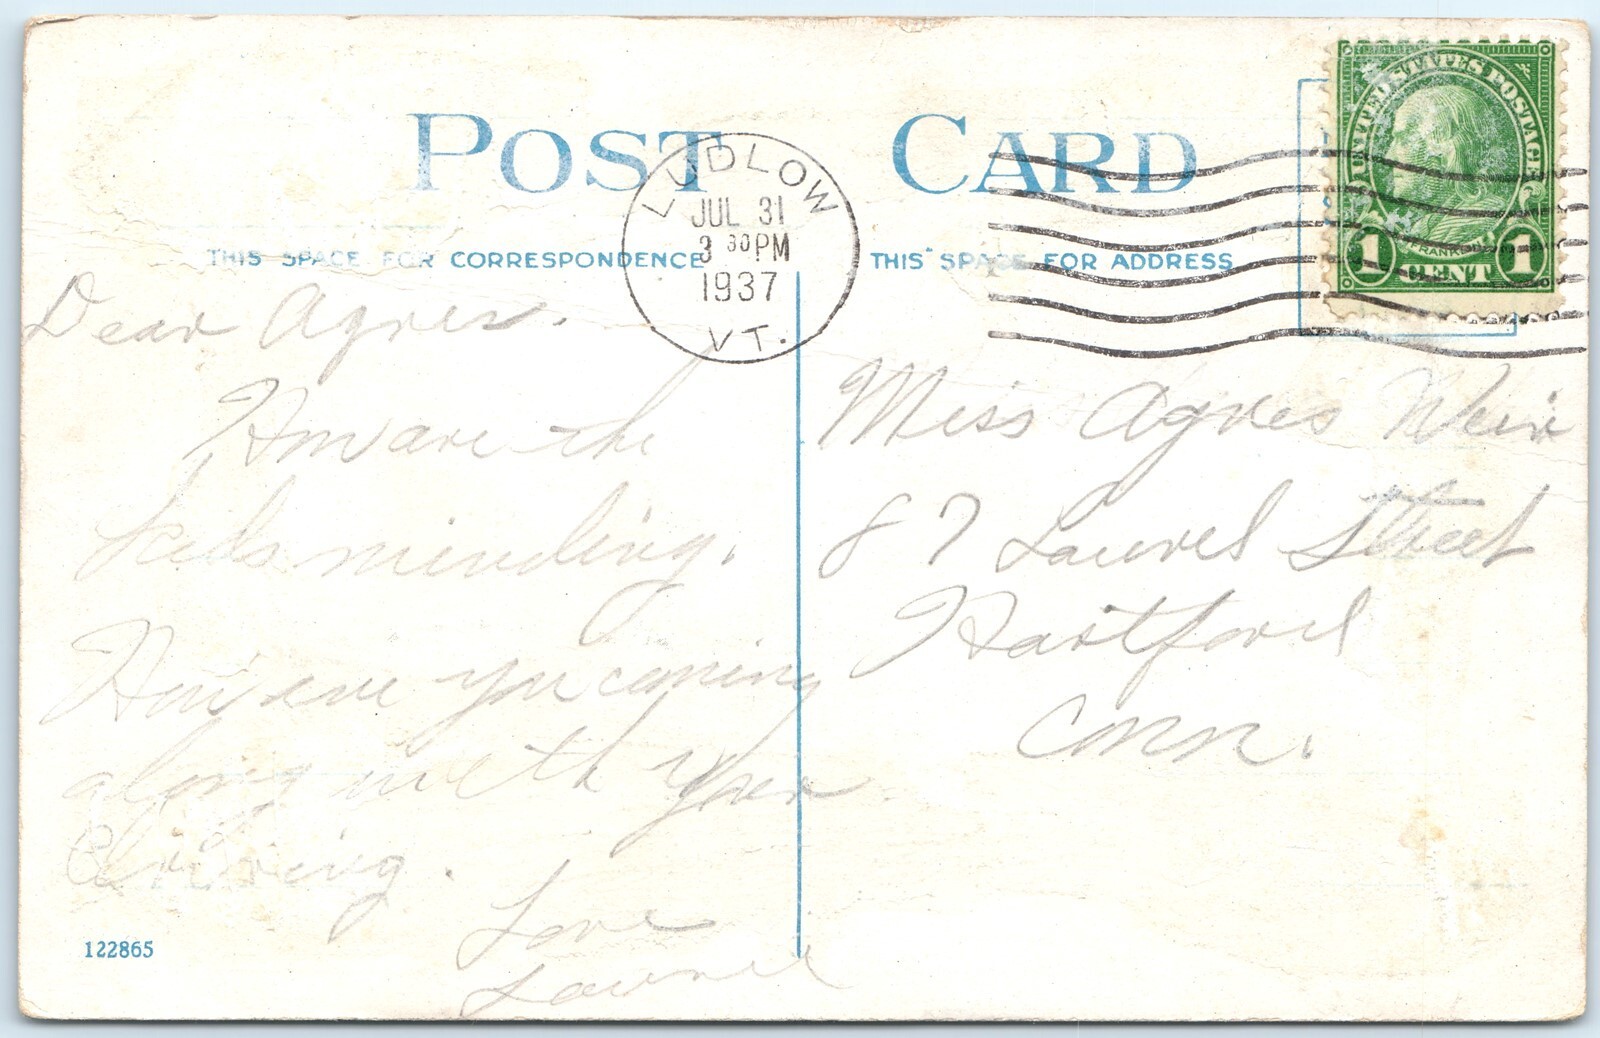 POST CARD
THIS SPACE FOR CORRESPONDENCE
THIS SPACE FOR ADDRESS
LUDLOW
JUL 31
3 30 PM
1937
VT.
UNITED STATES POSTAGE
FRANKLIN
1 CENT 1
Dear Agnes.
How are the
kids minding.
How are you coming
along with your
driving.
Love
Laurel
Miss Agnes Weir
87 Laurel Street
Hartford
Conn.
122865